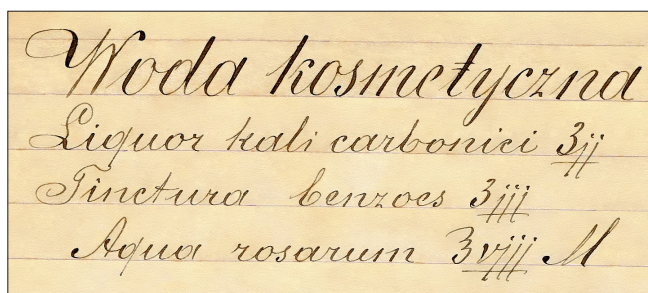 Woda kosmetyczna
Liquor kali carbonici ʒjj
Tinctura benzoes ʒjjj
Aqua rosarum ʒvjjj M